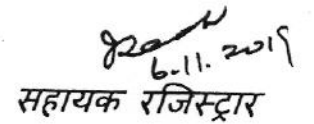 6.11.2019
सहायक रजिस्ट्रार